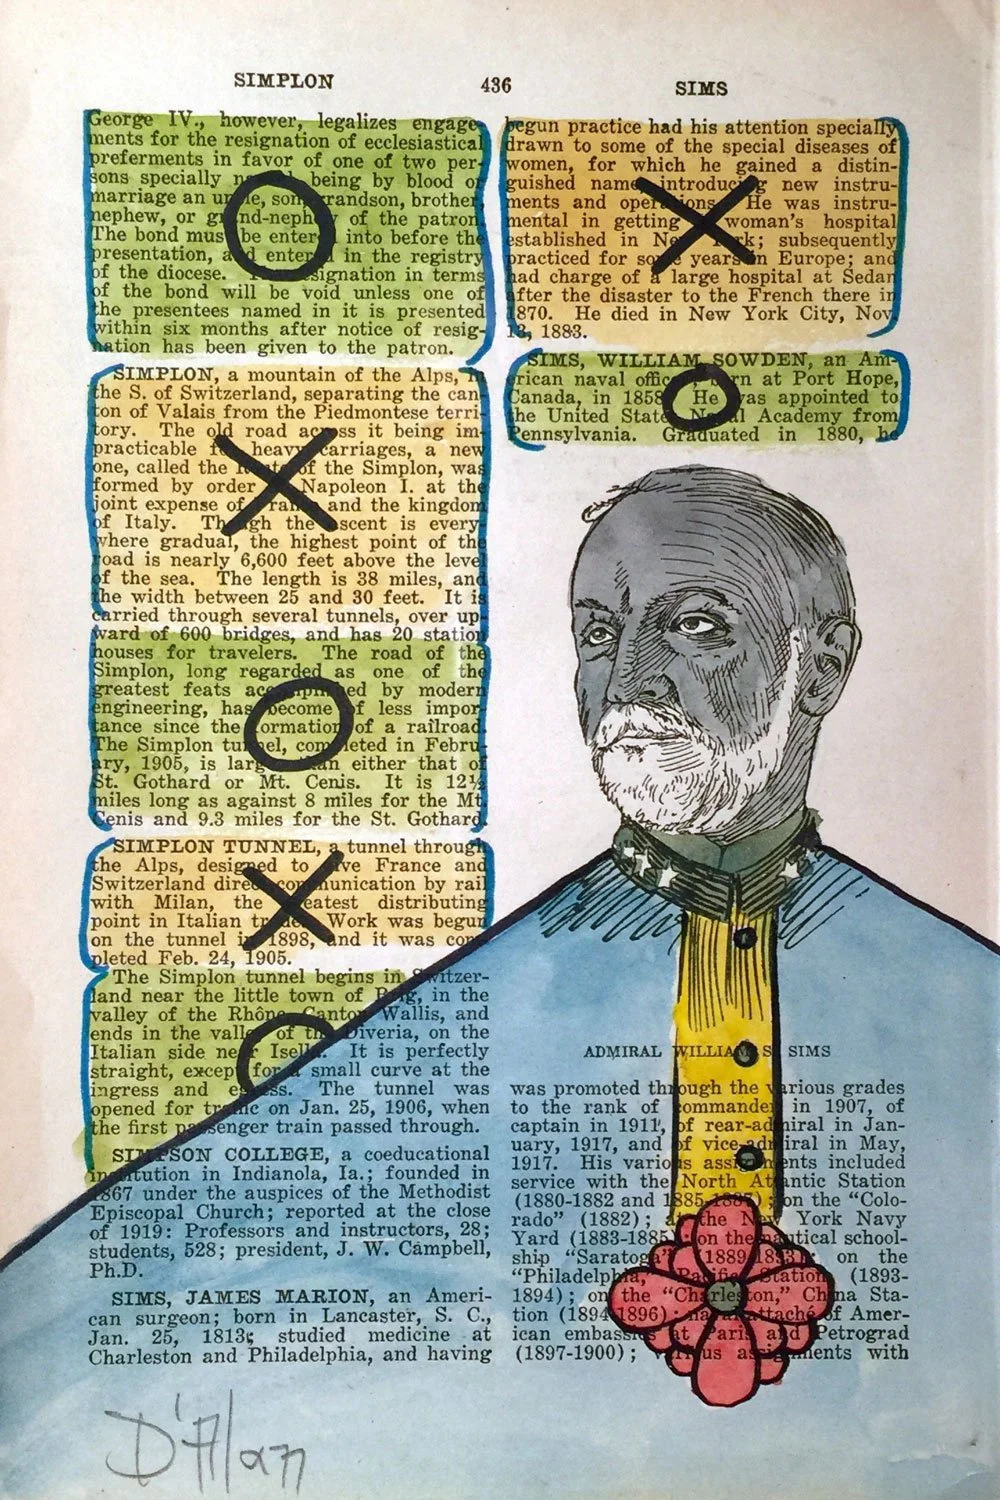 SIMPLON 436 SIMS
George IV., however, legalizes engage-
ments for the resignation of ecclesiastical
preferments in favor of one of two per-
sons specially named, being by blood or
marriage an uncle, son, grandson, brother,
nephew, or grand-nephew of the patron.
The bond must be entered into before the
presentation, and entered in the registry
of the diocese. resignation in terms
of the bond will be void unless one of
the presentees named in it is presented
within six months after notice of resig-
nation has been given to the patron.
SIMPLON, a mountain of the Alps, in
the S. of Switzerland, separating the can-
ton of Valais from the Piedmontese terri-
tory. The old road across it being im-
practicable for heavy carriages, a new
one, called the Route of the Simplon, was
formed by order of Napoleon I. at the
joint expense of France and the kingdom
of Italy. Though the ascent is every-
where gradual, the highest point of the
road is nearly 6,600 feet above the level
of the sea. The length is 38 miles, and
the width between 25 and 30 feet. It is
carried through several tunnels, over up-
ward of 600 bridges, and has 20 station
houses for travelers. The road of the
Simplon, long regarded as one of the
greatest feats accomplished by modern
engineering, has become of less impor-
tance since the formation of a railroad.
The Simplon tunnel, completed in Febru-
ary, 1905, is larger than either that of
St. Gothard or Mt. Cenis. It is 12½
miles long as against 8 miles for the Mt.
Cenis and 9.3 miles for the St. Gothard.
SIMPLON TUNNEL, a tunnel through
the Alps, designed to give France and
Switzerland direct communication by rail
with Milan, the greatest distributing
point in Italian trade. Work was begun
on the tunnel in 1898, and it was com-
pleted Feb. 24, 1905.
The Simplon tunnel begins in Switzer-
land near the little town of Brig, in the
valley of the Rhône, Canton Wallis, and
ends in the valley of the Diveria, on the
Italian side near Iselle. It is perfectly
straight, except for a small curve at the
ingress and egress. The tunnel was
opened for traffic on Jan. 25, 1906, when
the first passenger train passed through.
SIMPSON COLLEGE, a coeducational
institution in Indianola, Ia.; founded in
1867 under the auspices of the Methodist
Episcopal Church; reported at the close
of 1919: Professors and instructors, 28;
students, 528; president, J. W. Campbell,
Ph.D.
SIMS, JAMES MARION, an Ameri-
can surgeon; born in Lancaster, S. C.,
Jan. 25, 1813; studied medicine at
Charleston and Philadelphia, and having
begun practice had his attention specially
drawn to some of the special diseases of
women, for which he gained a distin-
guished name, introducing new instru-
ments and operations. He was instru-
mental in getting a woman's hospital
established in New York; subsequently
practiced for some years in Europe; and
had charge of a large hospital at Sedan
after the disaster to the French there in
1870. He died in New York City, Nov.
13, 1883.
SIMS, WILLIAM SOWDEN, an Am-
erican naval officer, born at Port Hope,
Canada, in 1858. He was appointed to
the United States Naval Academy from
Pennsylvania. Graduated in 1880, he
ADMIRAL WILLIAM S. SIMS
was promoted through the various grades
to the rank of commander in 1907, of
captain in 1911, of rear-admiral in Jan-
uary, 1917, and of vice-admiral in May,
1917. His various assignments included
service with the North Atlantic Station
(1880-1882 and 1885-1887); on the "Colo-
rado" (1882); at the New York Navy
Yard (1883-1885); on the nautical school-
ship "Saratoga" (1889-1893); on the
"Philadelphia," Pacific Station (1893-
1894); on the "Charleston," China Sta-
tion (1894-1896); naval attaché of Amer-
ican embassies at Paris and Petrograd
(1897-1900); various assignments with
D'Alan